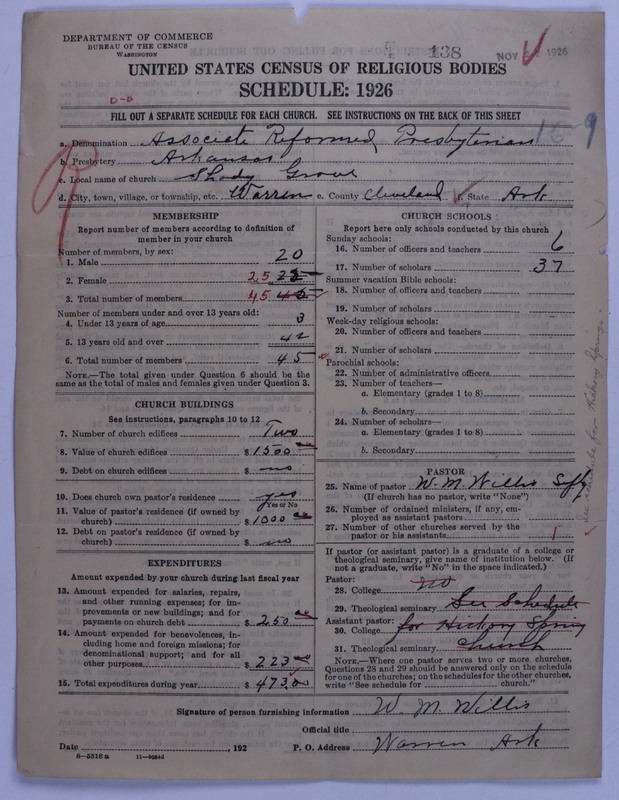 DEPARTMENT OF COMMERCE
BUREAU OF THE CENSUS
WASHINGTON
138
NOV 1926
UNITED STATES CENSUS OF RELIGIOUS BODIES
SCHEDULE: 1926
FILL OUT A SEPARATE SCHEDULE FOR EACH CHURCH. SEE INSTRUCTIONS ON THE BACK OF THIS SHEET
16-9
a. Denomination Associate Reformed Presbyterian
b. Presbytery Arkansas
c. Local name of church Shady Grove
d. City, town, village, or township, etc. Warren e. County Cleveland f. State Ark
MEMBERSHIP
Report number of members according to definition of
member in your church
Number of members, by sex:
1. Male 20
2. Female 25 25
3. Total number of members 45 45
Number of members under and over 13 years old:
4. Under 13 years of age 3
5. 13 years old and over 42
6. Total number of members 45
NOTE.—The total given under Question 6 should be the
same as the total of males and females given under Question 3.
CHURCH BUILDINGS
See instructions, paragraphs 10 to 12
7. Number of church edifices Two
8. Value of church edifices $ 1500 00
9. Debt on church edifices $ no
10. Does church own pastor's residence yes
Yes or No
11. Value of pastor's residence (if owned by
church) $ 1000 00
12. Debt on pastor's residence (if owned by
church) $ no
EXPENDITURES
Amount expended by your church during last fiscal year
13. Amount expended for salaries, repairs,
and other running expenses; for im-
provements or new buildings; and for
payments on church debt $ 250 00
14. Amount expended for benevolences, in-
cluding home and foreign missions; for
denominational support; and for all
other purposes $ 223
15. Total expenditures during year $ 473.00
CHURCH SCHOOLS
Report here only schools conducted by this church
Sunday schools:
16. Number of officers and teachers 6
17. Number of scholars 37
Summer vacation Bible schools:
18. Number of officers and teachers
19. Number of scholars
Week-day religious schools:
20. Number of officers and teachers
21. Number of scholars
Parochial schools:
22. Number of administrative officers
23. Number of teachers—
a. Elementary (grades 1 to 8)
b. Secondary
24. Number of scholars—
a. Elementary (grades 1 to 8)
b. Secondary
See schedule from Hickory Springs.
PASTOR
25. Name of pastor W. M. Willis
(If church has no pastor, write "None")
26. Number of ordained ministers, if any, em-
ployed as assistant pastors
27. Number of other churches served by the
pastor or his assistants 1
If pastor (or assistant pastor) is a graduate of a college or
theological seminary, give name of institution below. (If
not a graduate, write "No" in the space indicated.)
Pastor:
28. College no
29. Theological seminary See Schedule
Assistant pastor:
30. College for Hickory Spring
31. Theological seminary church
NOTE.—Where one pastor serves two or more churches,
Questions 28 and 29 should be answered only on the schedule
for one of the churches; on the schedules for the other churches,
write "See schedule for church."
Signature of person furnishing information W. M. Willis
Official title
Date , 192 P. O. Address Warren Ark
8—5518a